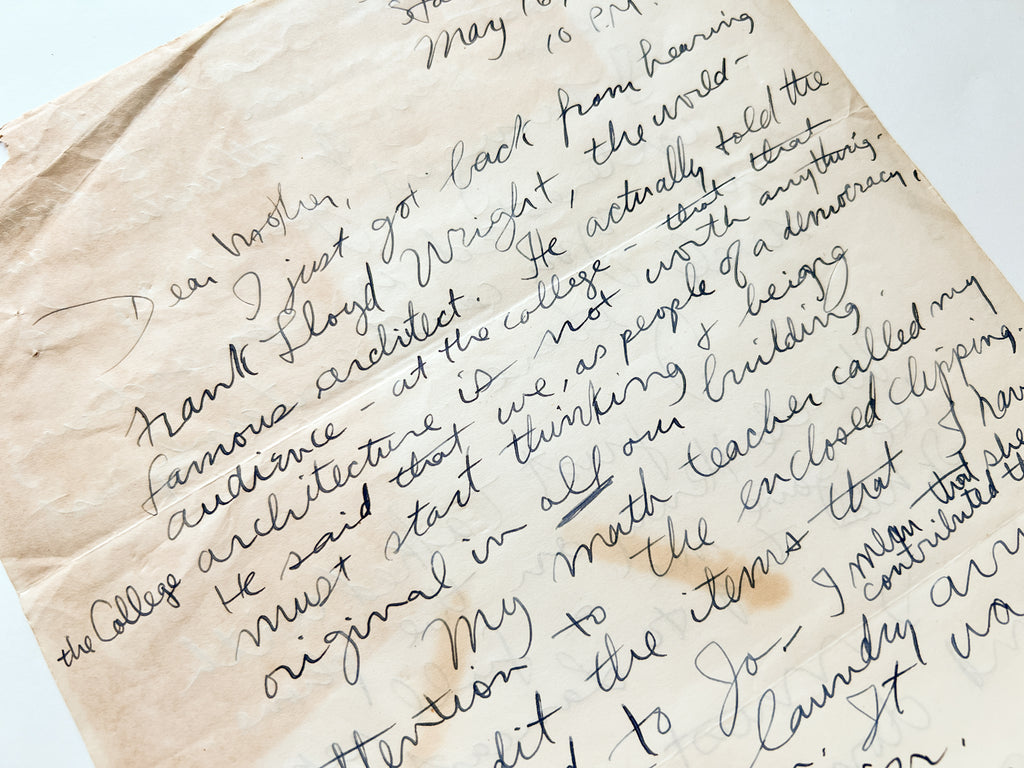 May 16,
10 P.M.
Dear Mother,
I just got back from hearing
Frank Lloyd Wright, the world-
famous architect. He actually told the
audience - at the college - that that
the College architecture is not worth anything.
He said that we, as people of a democracy,
must start thinking & beigng
original in all our building.
My math teacher called my
attention to the enclosed clipping.
the items that I hav
edit to Jo- I mean that she
contributed th
laundry arr
It wa